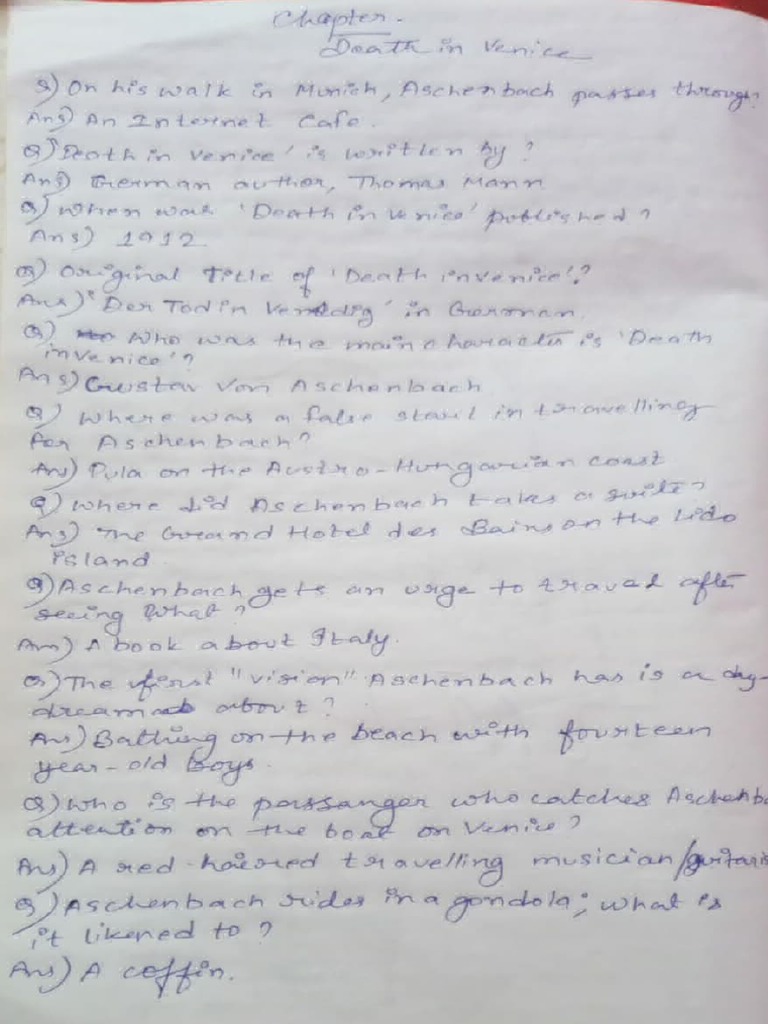 Chapter -
Death in Venice
Q) On his walk in Munich, Aschenbach passes through?
Ans) An Internet Cafe.
Q) 'Death in Venice' is written by?
Ans) German author, Thomas Mann
Q) When was 'Death in Venice' published?
Ans) 1912.
Q) Original Title of 'Death in Venice'?
Ans) 'Der Tod in Venedig' in German.
Q) Who was the main character is 'Death
in Venice'?
Ans) Gustav Von Aschenbach
Q) Where was a false start in travelling
for Aschenbach?
Ans) Pula on the Austro-Hungarian coast
Q) Where did Aschenbach takes a suite?
Ans) The Grand Hotel des Bains on the Lido
island
Q) Aschenbach gets an urge to travel after
seeing what?
Ans) A book about Italy.
Q) The first "vision" Aschenbach has is a day-
dream about?
Ans) Bathing on the beach with fourteen
year-old boys.
Q) Who is the passanger who catches Aschenba
attention on the boat on Venice?
Ans) A red-haired travelling musician/guitaris
Q) Aschenbach rides in a gondola; what is
it likened to?
Ans) A coffin.